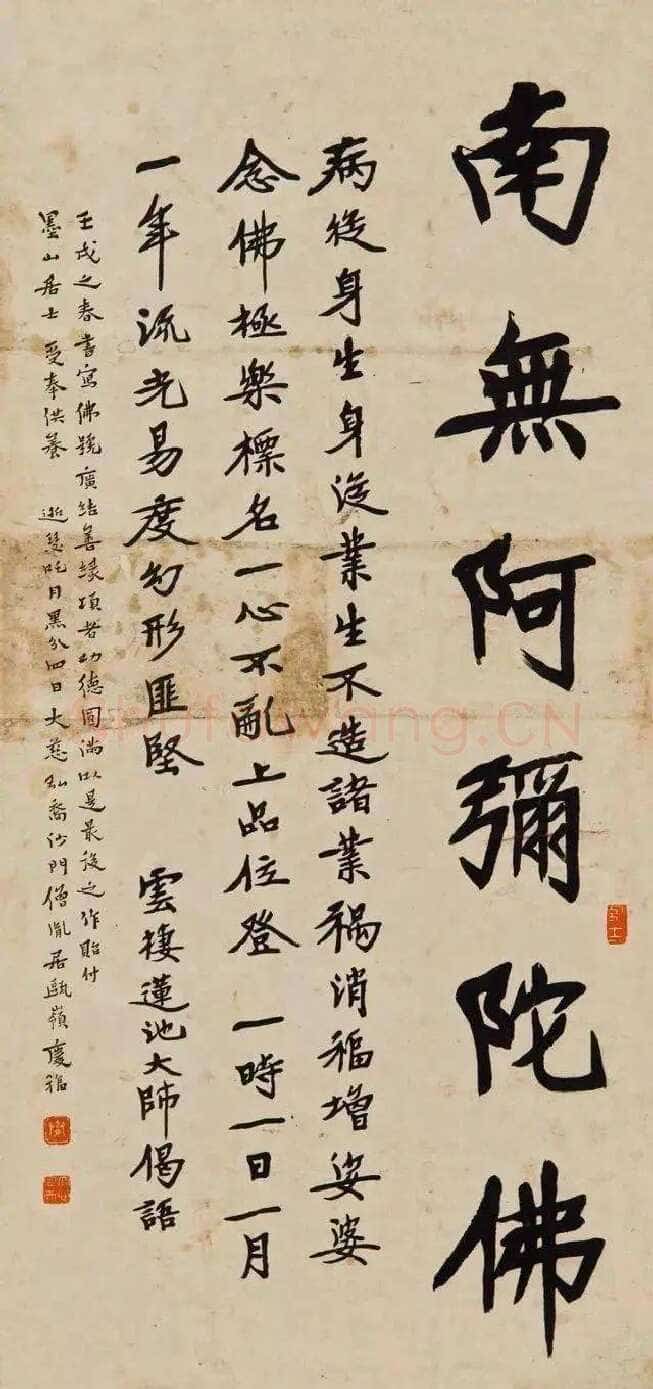 南無阿彌陀佛
病從身生身從業生不造諸業禍消福增娑婆
念佛極樂標名一心不亂上品位登 一時一日一月
一年流光易度幻形匪堅 雲棲蓮池大師偈語
壬戌之春書寫佛號廣結善緣項者功德圓滿以是最後之作貽付
墨山居士 受奉供養 逝瑟吒月黑分四日大慈弘裔沙門僧胤居甌嶺慶福
Shufawang.CN